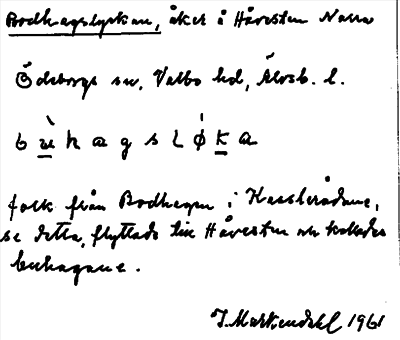 Bodhagslyckan, åker å Håvesten Norra
Ödeborgs sn, Valbo hd, Älvsb. l.
b u h a g s l ø k a
folk från Bodhagen i Kasslerådane,
se detta, flyttade till Håvesten och kallades
buhagane.
J. Markendahl 1961